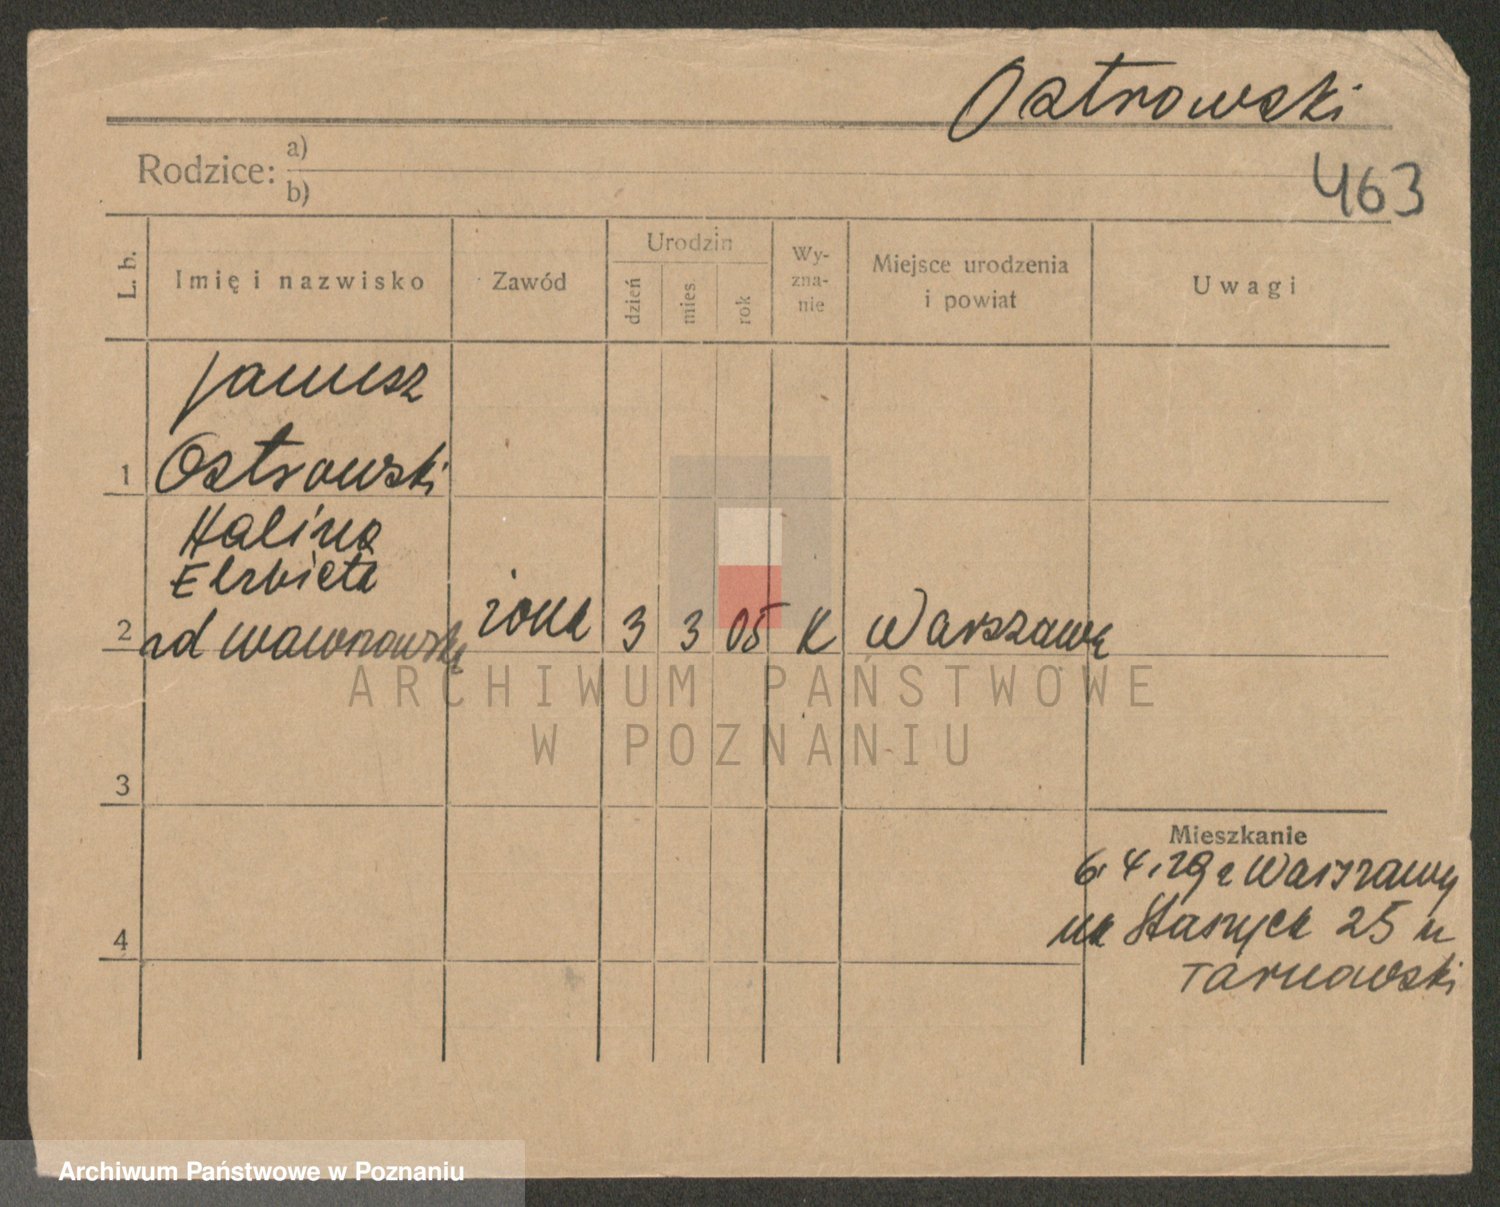 Ostrowski
463
Rodzice: a)
b)
L. b.
Imię i nazwisko
Zawód
Urodzin
dzień
mies.
rok
Wy-
zna-
nie
Miejsce urodzenia
i powiat
Uwagi
Janusz
1 Ostrowski
Halina
Elzbieta
2 żona 3 3 05 K Warszawa
ARCHIWUM PAŃSTWOWE
W POZNANIU
3
Mieszkanie
6. 4. 29 z Warszawy
na Staszyca 25 u
Tarnowski
4
Archiwum Państwowe w Poznaniu